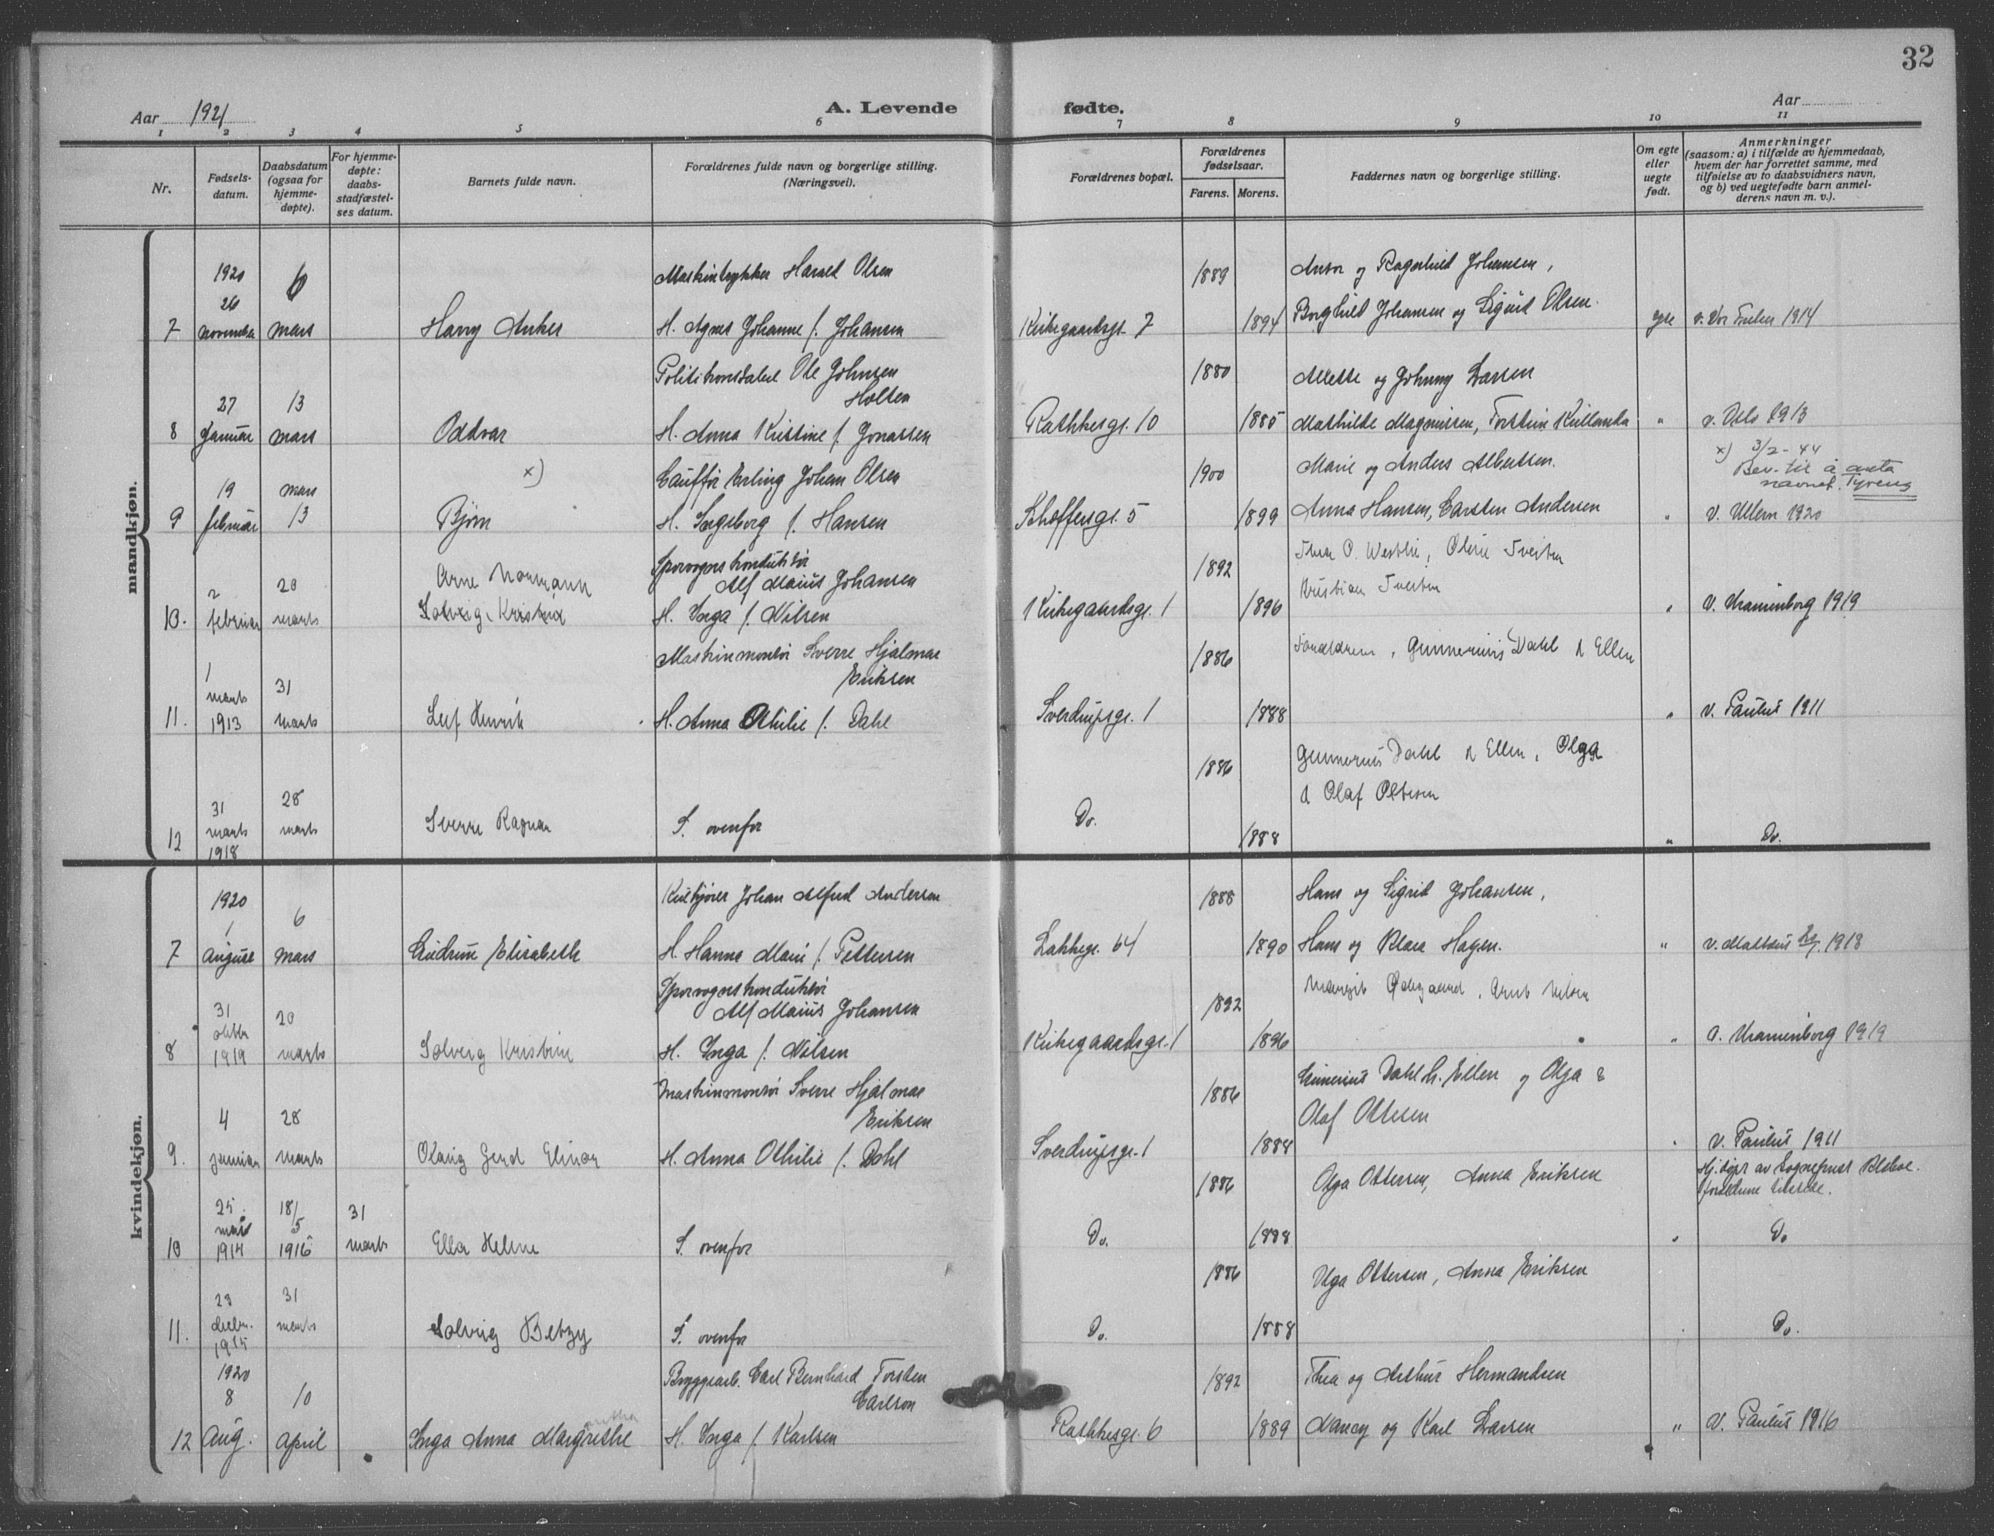 32
Aar 1921
A. Levende fødte.
Aar
1 2 3 4 5 6 7 8 9 10 11
Nr.
Fødsels-
datum.
Daabsdatum
(ogsaa for
hjemme-
døpte).
For hjemme-
døpte:
daabs-
stadfæstel-
ses datum.
Barnets fulde navn.
Forældrenes fulde navn og borgerlige stilling.
(Næringsvei).
Forældrenes bopæl.
Forældrenes
fødselsaar.
Farens. Morens.
Faddernes navn og borgerlige stilling.
Om egte
eller
uegte
født.
Anmerkninger
(saasom: a) i tilfælde av hjemmedaab,
hvem der har forrettet samme, med
tilføielse av to daabsvidners navn,
og b) ved uegtefødte barn anmel-
derens navn m. v.).
mandkjøn.
1920 6 Maskintrykker Harald Olsen 1889 Anton og Ragnhild Johansen,
26
7 november mars Harry Anker H. Agnes Johanne f. Johansen Kirkegaardsgt. 7 1894 Borghild Johansen og Sigurd Olsen. egte v. Vor Frelser 1914
Politikonstabel Ole Johnsen 1880 Alette og Johnny Larsen
27 13 Holten
8 Januar mars Oddvar H. Anna Kristine f. Jonassen Rathkesgt. 10 1885 Mathilde Magnussen, Torstein " v. Oslo 1913
x) Chauffør Erling Johan Olsen 1900 Marie og Anders Albertsen. x) 3/2-44
Bev. til å anta
navnet Tyreng
19 mars
9 februar 13 Bjørn H. Ingeborg f. Hansen Schaffersgt. 5 1899 Anna Hansen, Carsten Andersen " V. Ullern 1920
Sporvognskonduktør 1892 Thea O. Westlie, Oline Tveiten
2 20 Arne Normann Alf Marius Johansen Kristian Tveiten
10. februar marts Solveig Kristine H. Inga f. Nilsen Kirkegaardsgt. 1 1896 " V. Uranienborg 1919
Maskinmontør Sverre Hjalmar 1886 Forældrene, Gunnerius Dahl & Ellen
1 31 Eriksen
marts
11. 1913 marts Leif Henrik H. Anna Othilie f. Dahl Sverdrupsgt. 1 1888 " v. Paulus 1911
1886 Gunnerius Dahl & Ellen, Olga
31 28 & Olaf Ottesen
12 marts marts Sverre Ragnar S. ovenfor Do. 1888 " Do.
1918
kvindekjøn.
1920 Kuskjører Johan Alfred Andersen 1888 Hans og Sigrid Johansen,
1 6
7 August mars Gudrun Elisabeth H. Hanna Marie f. Pettersen Lakkegt. 64 1890 Hans og Klara Hagen. " v. Mattæus 1918
Sporvognskonduktør 1892 Margit Ødegaard, Arnt Nilsen
31 20 Alf Marius Johansen
oktbr
8 1919 marts Solveig Kristine H. Inga f. Nilsen Kirkegaardsgt. 1 1896 " v. Uranienborg 1919
Maskinmontør Sverre Hjalmar 1886 Gunnerius Dahl h. Ellen og Olga &
4 28 Eriksen Olaf Ottesen
9. januar marts Gerd Elinor H. Anna Othilie f. Dahl Sverdrupsgt. 1 1888 " v. Paulus 1911
1886 Olga Ottersen, Anna Eriksen Hj. døpt av Sogneprest
forældrene tilstede.
25 18/5 31
mars
10 1914 1916 marts Ella Helene S. ovenfor Do. 1888 " Do
1886 Olga Ottersen, Anna Eriksen
23 31
decbr. marts
11. 1915 Solveig Betzy S. ovenfor Do. 1888 " Do.
1920 Byggearb. Carl Bernhard Torsten 1892 Thea og Arthur Hermandsen
8 10 Carlson
12 Aug. april Inga Anna Margrethe H. Inga f. Karlsen Rathkesgt. 6 1889 Nancy og Karl Larsen " v. Paulus 1916